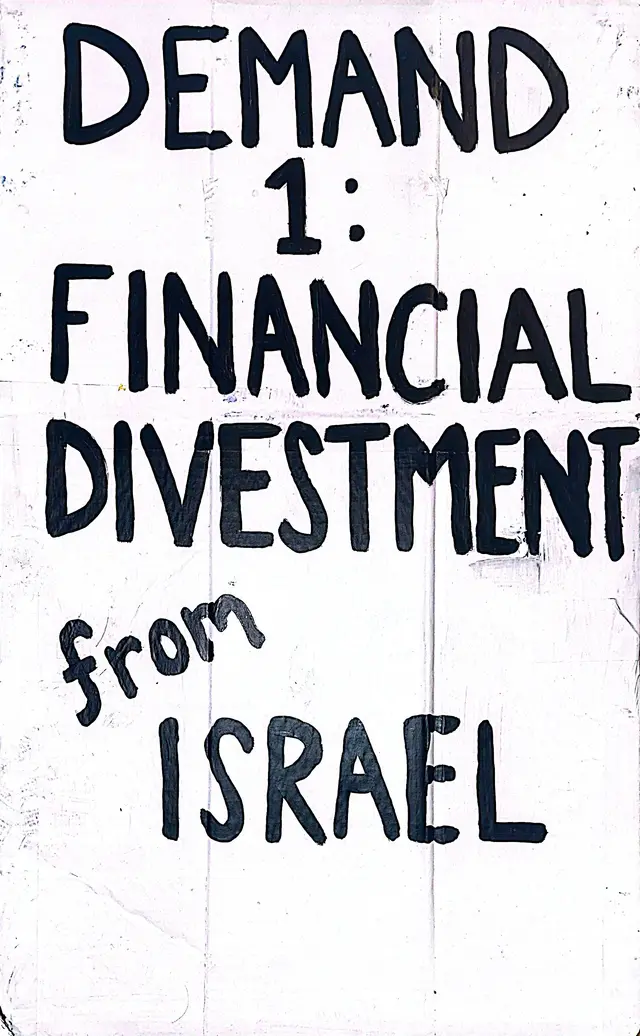 DEMAND
1:
FINANCIAL
DIVESTMENT
from
ISRAEL